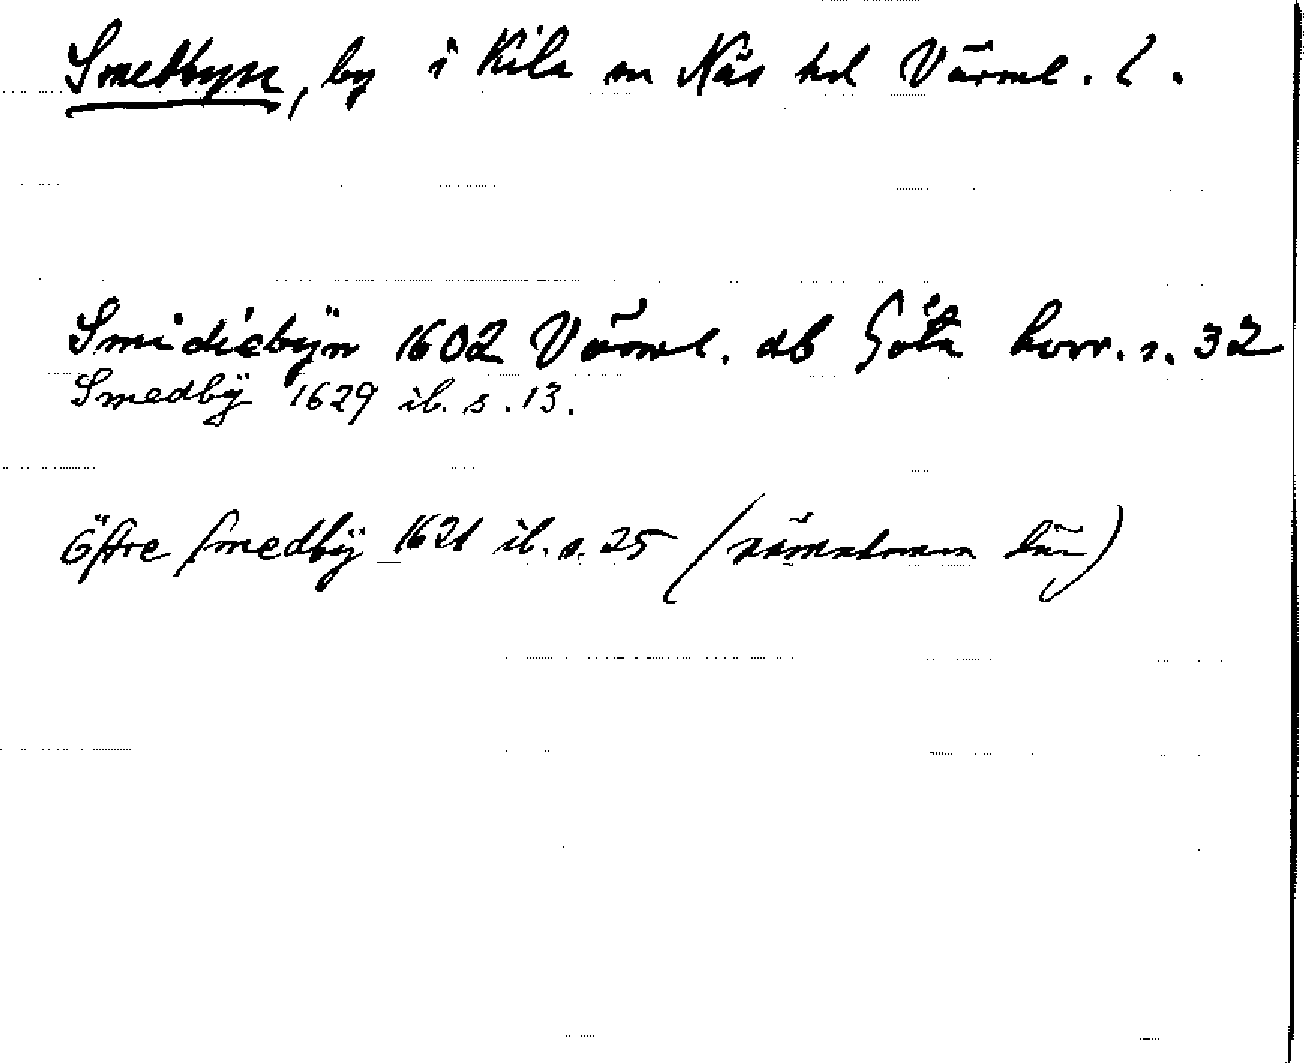 Smedbyn, by i Kila sn Näs hd Värml. l.
Smidiebÿn 1602 Värml. db Göta hovr. s. 32
Smedbÿ 1629 ib. s. 13.
Öffre Smedbÿ 1621 ib. s. 25 (